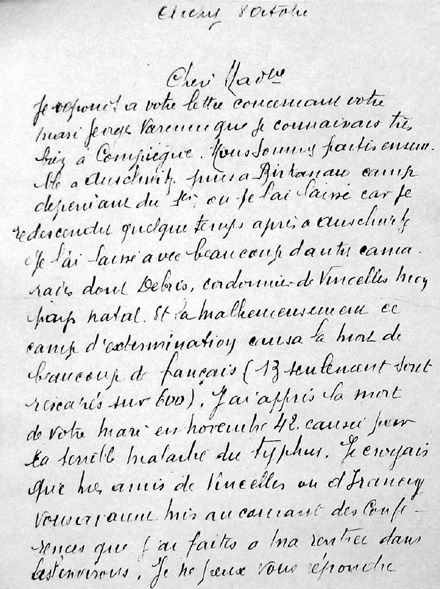 8 octobre
Chère Madme
Je réponds a votre lettre concernant votre
mari George Varenne que je connaissais très
bien a Compiègne. Nous sommes partis ensem.
ble a Auschwitz puis a Birkenau camp
dependant du 1er. ou je l'ai laissé car je
redescendu quelque temps après a Auschwitz
Je l'ai laissé avec beaucoup d'autres cama.
rades dont Debris, cordonnier de Vincelles mon
pays natal. Et la malheureusement ce
camp d'extermination causa la mort de
beaucoup de français (13 seulement sont
rescapés sur 600). J'ai appris la mort
de votre mari en novembre 42. causée par
la terrible maladie du typhus. Je croyais
que mes amis de Vincelles ou d'Irancy
vous avaient mis au courant des Confé-
rences que j'ai faites a ma rentrée dans
les environs. Je ne peux vous répondre